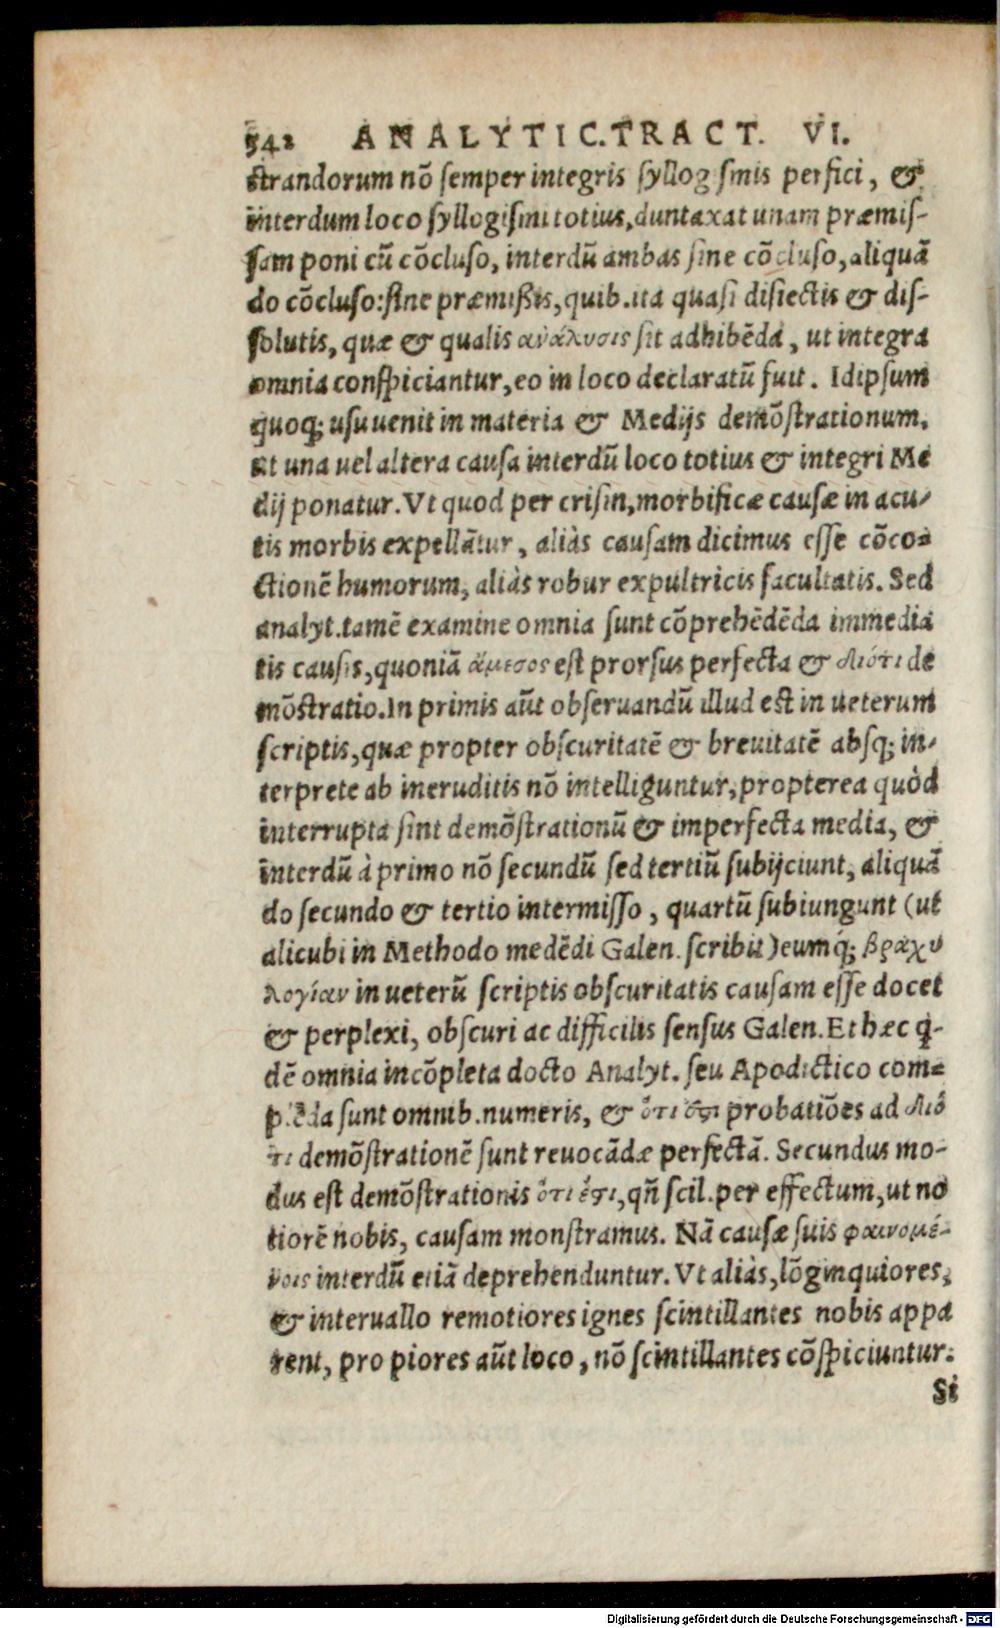 542 ANALYTIC. TRACT. VI.
strandorum nõ semper integris syllogismis perfici, &
interdum loco syllogismi totius, duntaxat unam præmis-
sam poni cũ cõcluso, interdũ ambas sine cõcluso, aliquã
do cõcluso: sine præmißis, quib. ita quasi disiectis & dis-
solutis, quæ & qualis ἀνάλυσις sit adhibẽda, ut integra
omnia conspiciantur, eo in loco declaratũ fuit. Idipsum
quoq; usu uenit in materia & Medijs demõstrationum,
ut una uel altera causa interdũ loco totius & integri Me
dij ponatur. Vt quod per crisin, morbificæ causæ in acu-
tis morbis expellãtur, aliàs causam dicimus esse cõco-
ctionẽ humorum, aliàs robur expultricis facultatis. Sed
analyt. tamẽ examine omnia sunt cõprehẽdẽda immedia
tis causis, quoniã ἄμεσος est prorsus perfecta & διότι de
mõstratio. In primis aũt obseruandũ illud est in ueterum
scriptis, quæ propter obscuritatẽ & breuitatẽ absq; in-
terprete ab ineruditis nõ intelliguntur, propterea quòd
interrupta sint demõstrationũ & imperfecta media, &
interdũ à primo nõ secundũ sed tertiũ subijciunt, aliquã
do secundo & tertio intermisso, quartũ subiungunt (ut
alicubi in Methodo medẽdi Galen. scribit) eumq́; βραχυ
λογίαν in ueterũ scriptis obscuritatis causam esse docet
& perplexi, obscuri ac difficilis sensus Galen. Et hæc q̃-
dẽ omnia incõpleta docto Analyt. seu Apodictico com-
plẽda sunt omnib. numeris, & ὅτι ἔστι probatiões ad διό
τι demõstrationẽ sunt reuocãdæ perfectã. Secundus mo-
dus est demõstrationis ὅτι ἔστι, qñ scil. per effectum, ut no
tiorẽ nobis, causam monstramus. Nã causæ suis φαινομέ-
νοις interdũ etiã deprehenduntur. Vt aliàs, lõginquiores,
& interuallo remotiores ignes scintillantes nobis appa
rent, propiores aũt loco, nõ scintillantes cõspiciuntur.
Si
Digitalisierung gefördert durch die Deutsche Forschungsgemeinschaft - DFG